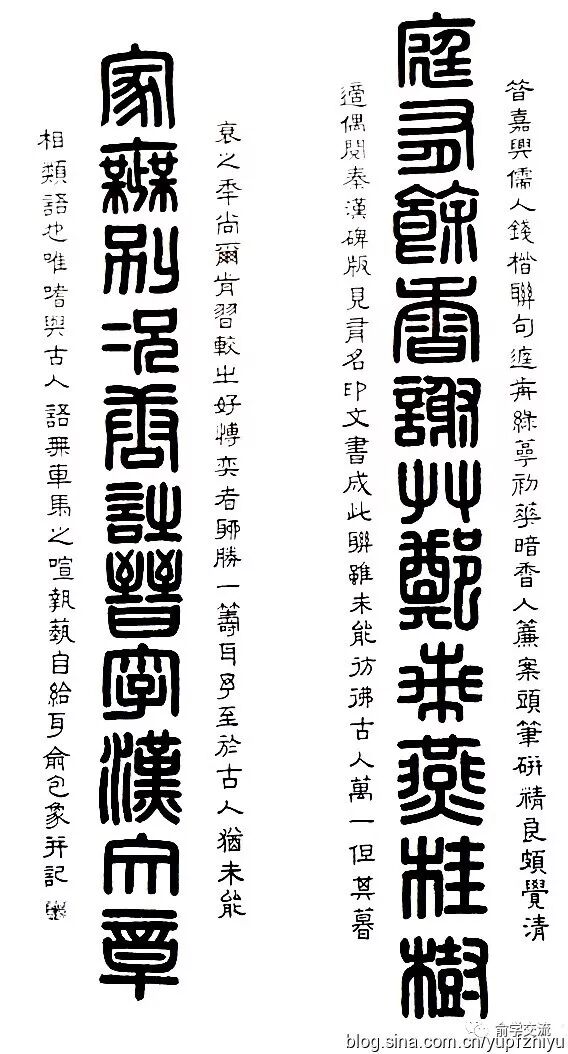 庭有餘香謝艸鄭燕桂樹
嘉興儒人錢楷聯句庭歬綠萼初華暗香入簾案頭筆研精良頗覺清
適偶閱秦漢碑版見名印文書成此聯雖未能彷彿古人萬一但其暮
家無別況唐詩晉字漢文章
衰之年尚爾肯習較之好博奕者勝一籌耳至於古人猶未能
相類語也唯嗜與古人語無車馬之喧執藝自給耳俞包象并記
俞学交流
blog.sina.com.cn/yupfzhiyu